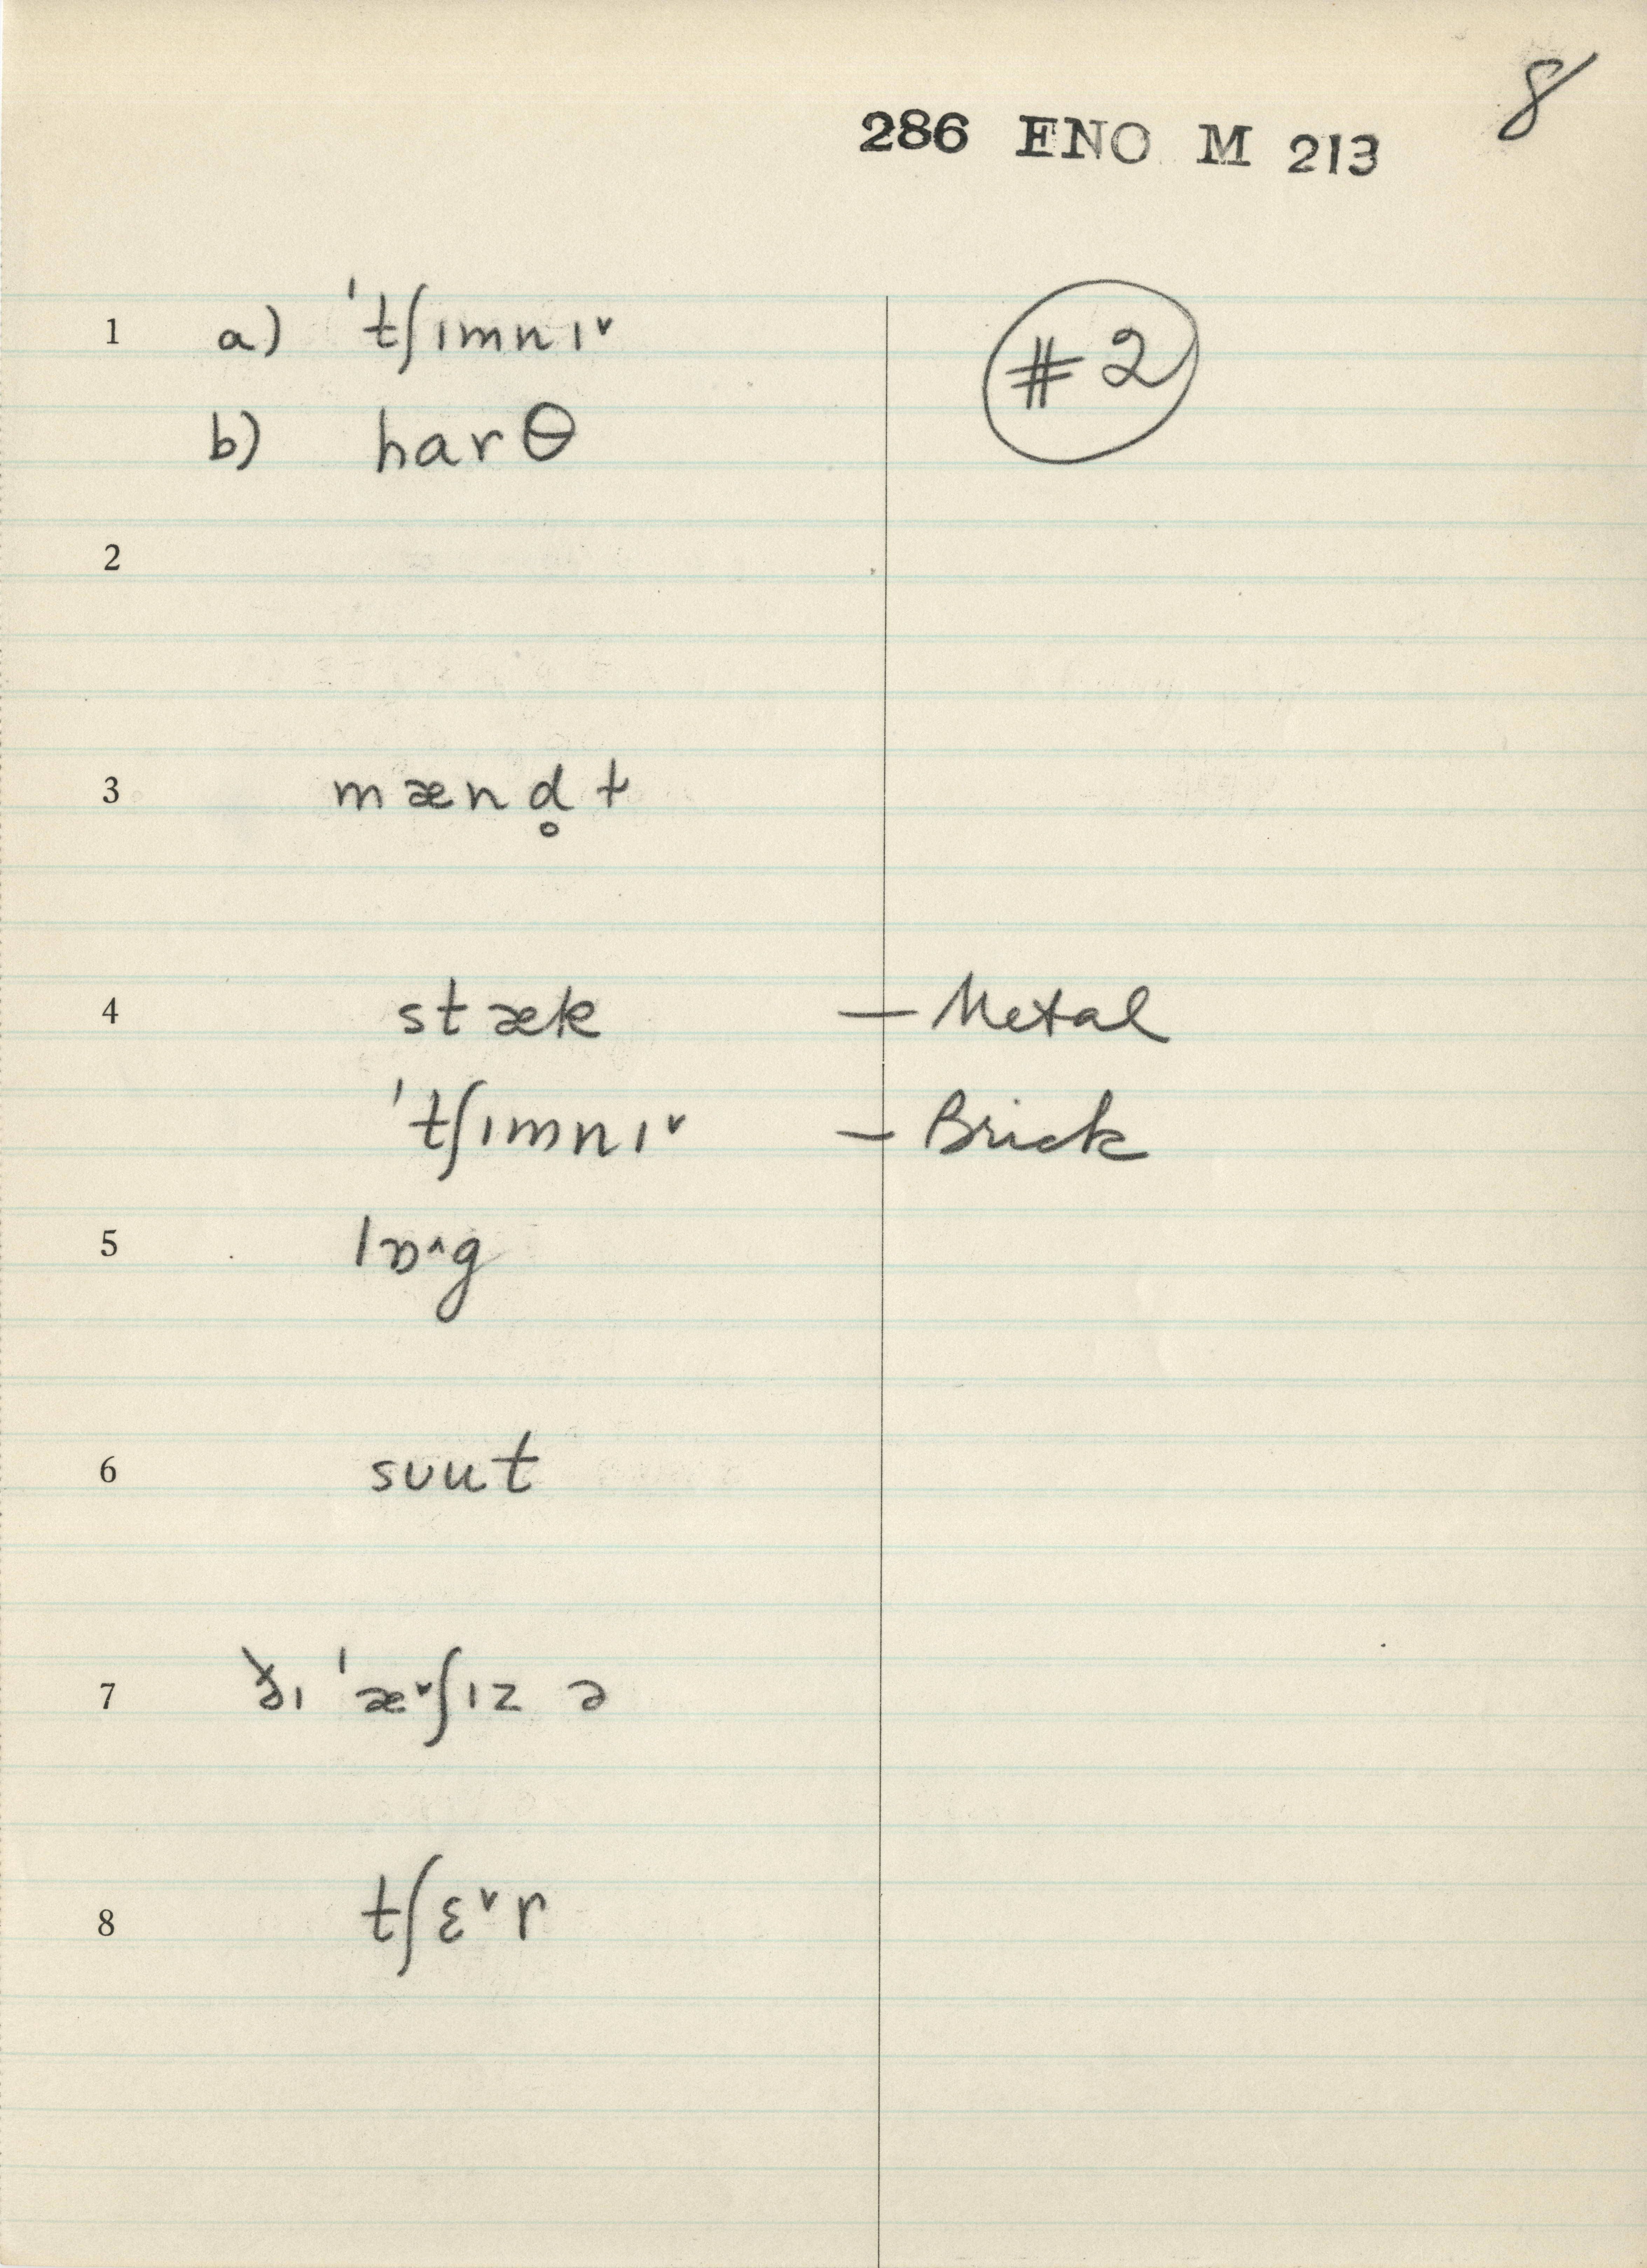 8
286 ENO M 213
1 a) ˈtʃɪmnɪ˅ #2
b) harθ
2
3 mænd̥t
4 stæk — Metal
ˈtʃɪmnɪ˅ — Brick
5 lɒ^g
6 sʊut
7 ðɪ ˈæ˅ʃɪz ə
8 tʃɛ˅r